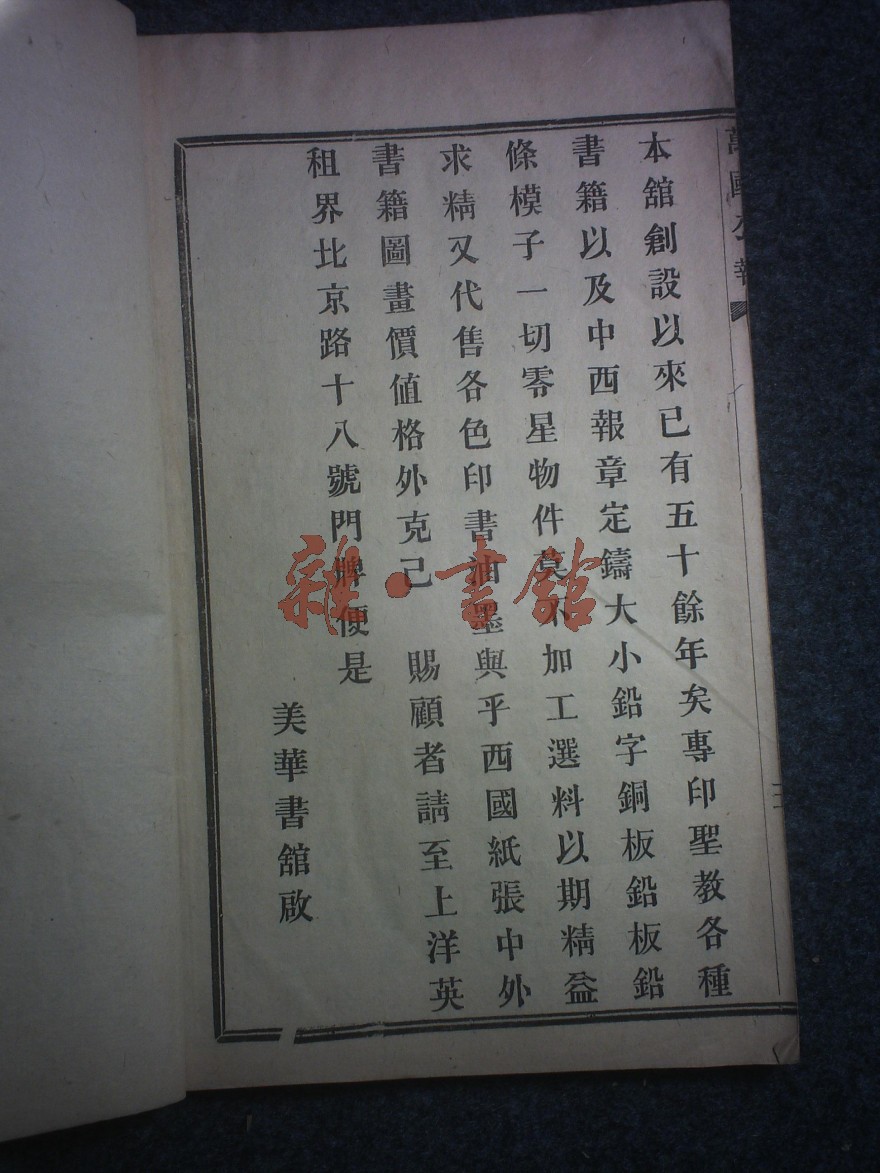 萬國公報
本舘創設以來已有五十餘年矣專印聖教各種
書籍以及中西報章定鑄大小鉛字銅板鉛板鉛
條模子一切零星物件莫不加工選料以期精益
求精又代售各色印書油墨與乎西國紙張中外
書籍圖畫價値格外克己 賜顧者請至上洋英
租界北京路十八號門牌便是
美華書舘啟
雜·書舘